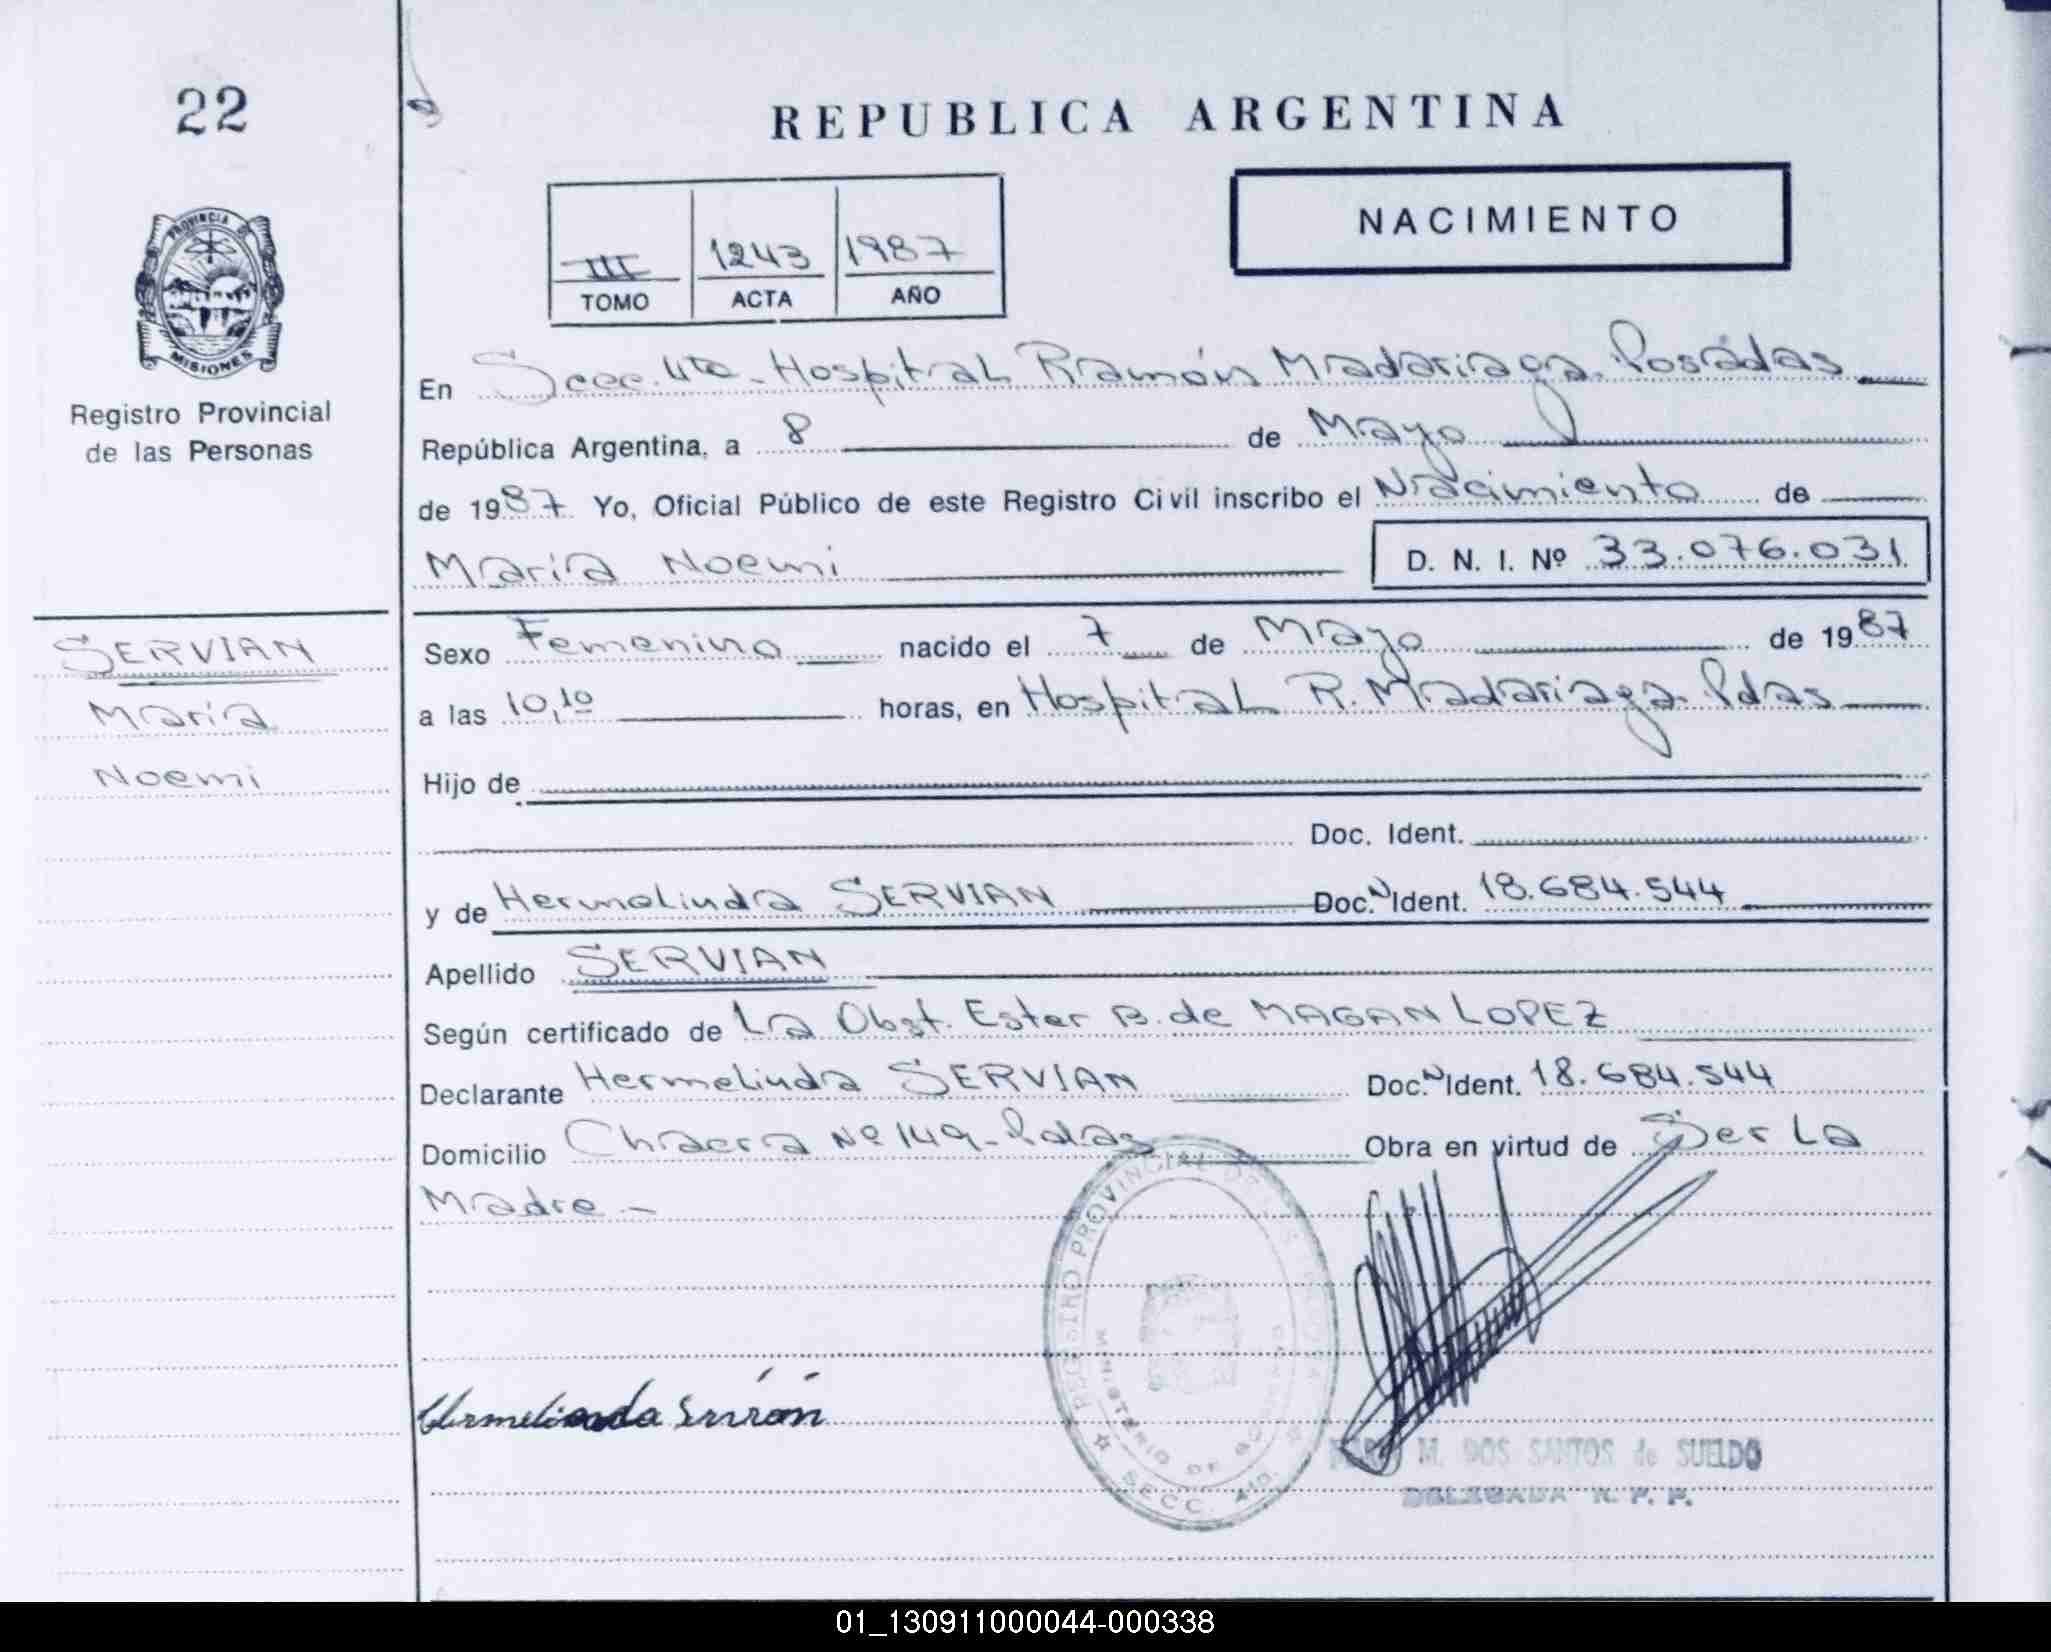 22
REPUBLICA ARGENTINA
PROVINCIA DE
MISIONES
Registro Provincial
de las Personas
III 1243 1987
TOMO ACTA AÑO
NACIMIENTO
En Secc. 4ta - Hospital Ramón Madariaga. Posadas
República Argentina, a 8 de Mayo
de 1987 Yo, Oficial Público de este Registro Civil inscribo el Nacimiento de
María Noemi D. N. I. Nº 33.076.031
SERVIAN
María
Noemi
Sexo Femenino nacido el 7 de Mayo de 1987
a las 10,10 horas, en Hospital R. Madariaga. Pdas
Hijo de
Doc. Ident.
y de Hermelinda SERVIAN Doc. N Ident. 18.684.544
Apellido SERVIAN
Según certificado de La Obst. Ester B. de MAGAN LOPEZ
Declarante Hermelinda SERVIAN Doc. N Ident. 18.684.544
Domicilio Chacra Nº 149 - Pdas Obra en virtud de Ser La
Madre -
REGISTRO PROVINCIAL DE LAS
MINISTERIO DE GOBIERNO
SECC. 4TA.
Hermelinda Servián
M. DOS SANTOS de SUELDO
DELEGADA R. P. P.
01_130911000044-000338